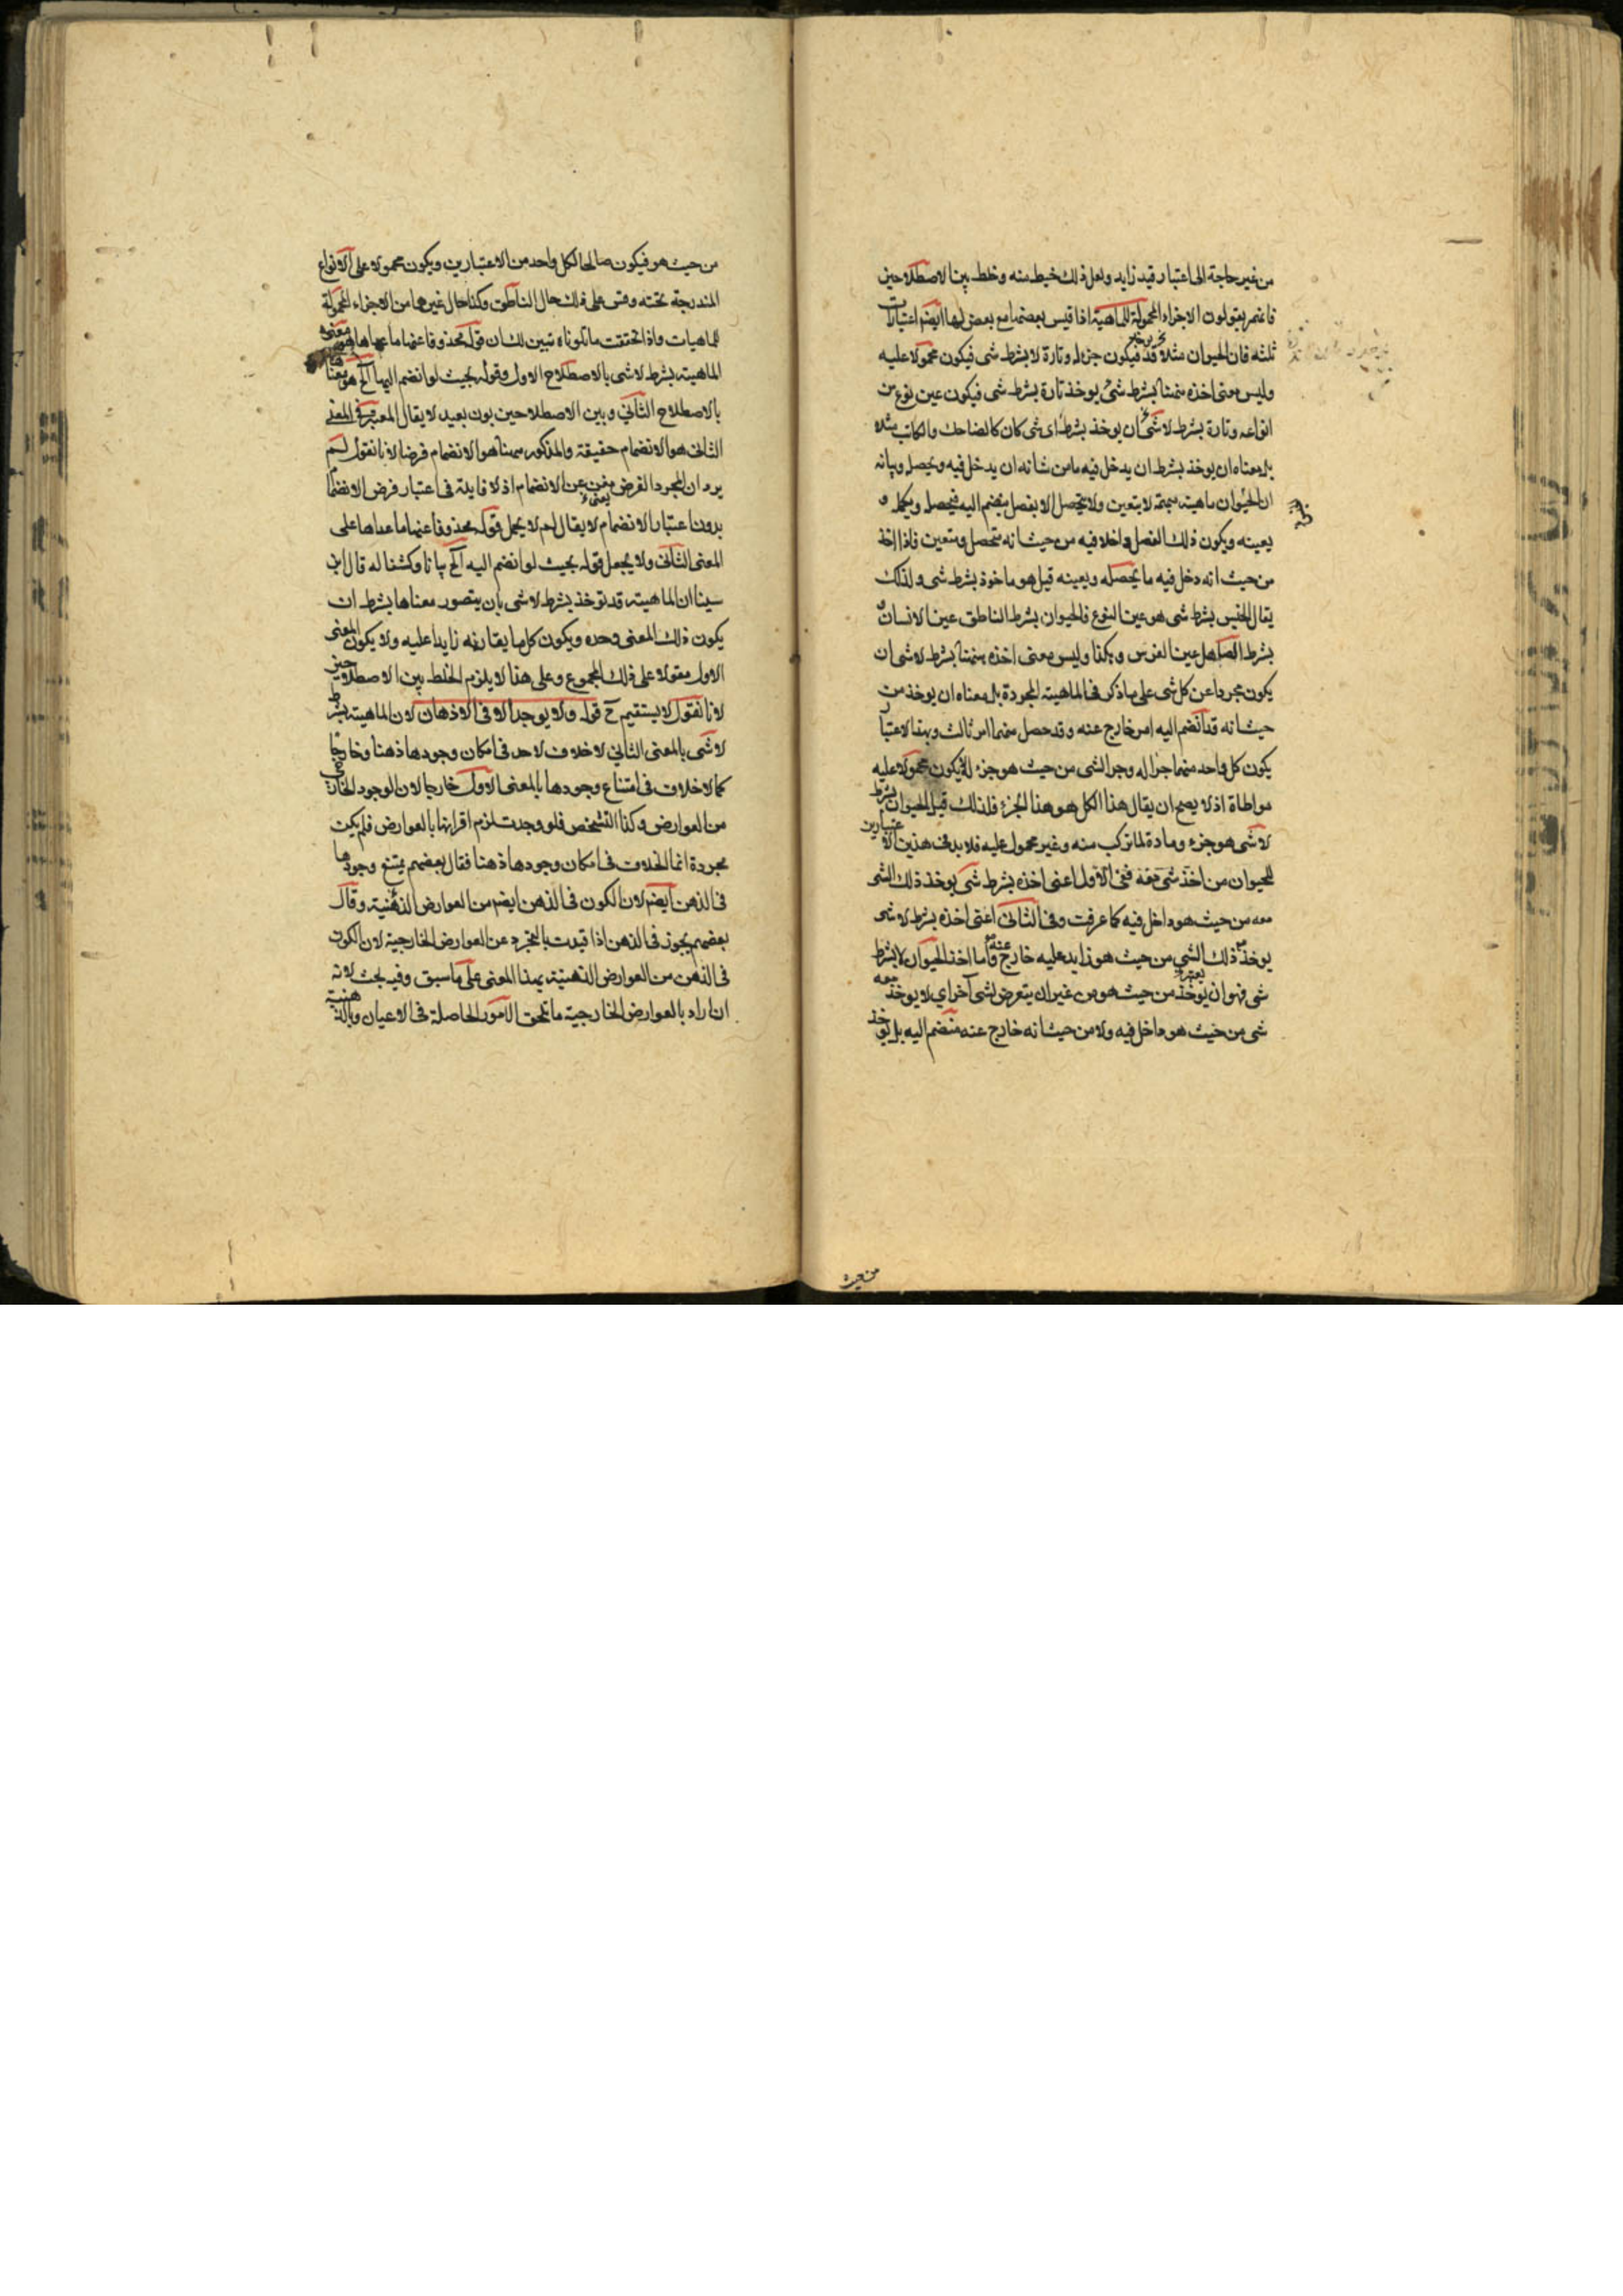 من غير حاجة الى اعتبار قيد زايد ولعل ذلك خبط منه وخلط بين الاصطلاحين
فانهم يقولون الاجزاء المحمولة للماهية اذا قيس بعضها مع بعض لها ايضم اعتبارات
ثلثة فان الحيوان مثلا قد فيكون جزءا وتارة لا بشرط شى فيكون محمولا عليه
وليس معنى اخذه ههنا بشرط شئ يوخذ تارة بشرط شى فيكون عين نوع من
انواعه وتارة بشرط لا شئ ان يوخذ بشرط اى شى كان كالضاحك والكاتب مثلا
بل معناه ان يوخذ بشرط ان يدخل فيه ما من شانه ان يدخل فيه ويحصله وبيانه
ان الحيوان ماهية مبهمة لا يتعين ولا يتحصل الا بفصل ينضم اليه فيحصله ويكمله و
يعينه ويكون ذلك الفصل داخلا فيه من حيث انه متحصل ومتعين فاذا اخذ
من حيث انه دخل فيه ما يحصله ويعينه قيل هو ماخوذ بشرط شى ولذلك
يقال الجنس بشرط شى هو عين النوع فالحيوان بشرط الناطق عين الانسان و
بشرط الصاهل عين الفرس وهكذا وليس معنى اخذه ههنا بشرط لا شى ان
يكون مجردا عن كل شى على ما ذكر فى الماهية المجردة بل معناه ان يوخذ من
حيث انه قد انضم اليه امر خارج عنه وقد حصل منهما امر ثالث وبهذا الاعتبار
يكون كل واحد منهما جزا له وجزا الشى من حيث هو جزء له لا يكون محمولا عليه
مواطاة اذ لا يصح ان يقال هذا الكل هو هذا الجزء فلذلك قيل الحيوان بشرط
لا شى هو جزء ومادة لما تركب منه وغير محمول عليه فلا بد فى هذين الاعتبارين
للحيوان من اخذ شى معه ففى الاول اعنى اخذه بشرط شى يوخذ ذلك الشى
معه من حيث هو داخل فيه كما عرفت وفى الثانى اعنى اخذه بشرط لا شى
يوخذ ذلك الشى من حيث هو زايد عليه خارج عنه واما اخذ الحيوان لا بشرط
شى فهو ان يوخذ من حيث هو من غير ان يتعرض لشى آخر اي لا يوخذ معه
شى من حيث هو داخل فيه ولا من حيث انه خارج عنه منضم اليه بل يوخذ
من حيث
من حيث هو فيكون صالحا لكل واحد من الاعتبارين ويكون محمولا على الانواع
المندرجة تحته وقس على ذلك حال الناطق وكذا حال غيرها من الاجزاء المحمولة
للماهيات واذا تحققت ما تلوناه تبين لك ان قوله محذوفا عنها ما عداها هو معنى
الماهية بشرط لا شى بالاصطلاح الاول وقوله بحيث لو انضم اليها آلخ هو معناها
بالاصطلاح الثانى وبين الاصطلاحين بون بعيد لا يقال المعتبر فى المعنى
الثانى هو الانضمام حقيقة والمذكور ههنا هو الانضمام فرضا لانا نقول لم
يرد ان المجرد الفرض مغن عن الانضمام اذ لا فايدة فى اعتبار فرض الانضمام
بدون اعتبار الانضمام لا يقال لم لا يحمل قوله محذوفا عنها ما عداها على
المعنى الثانى ولا يجعل قوله بحيث لو انضم اليه آلخ بيانا وكشفا له قال ابن
سينا ان الماهية قد توخذ بشرط لا شى بان يتصور معناها بشرط ان
يكون ذلك المعنى وحده ويكون كل ما يقارنه زايدا عليه ولا يكون المعنى
الاول مقولا على ذلك المجموع وعلى هذا لا يلزم الخلط بين الاصطلاحين
لانا نقول لا يستقيم ح قوله ولا يوجد الا فى الاذهان لان الماهية بشرط
لا شى بالمعنى الثانى لا خلاف لاحد فى امكان وجودها ذهنا وخارجا
كما لا خلاف فى امتناع وجودها بالمعنى الاول خارجا لان الوجود الخارجى
من العوارض وكذا التشخص فلو وجدت لزم اقرانها بالعوارض فلم يكن
مجردة انما الخلاف فى امكان وجودها ذهنا فقال بعضهم يمتنع وجودها
فى الذهن ايضم لان الكون فى الذهن ايضم من العوارض الذهنية وقال
بعضهم يجوز فى الذهن اذا قيدت بالتجرد عن العوارض الخارجية لان الكون
فى الذهن من العوارض الذهنية بهذا المعنى على ما سبق وفيه بحث لانه
ان اراد بالعوارض الخارجية ما تلحق الامور الحاصلة فى الاعيان وبالذهنية